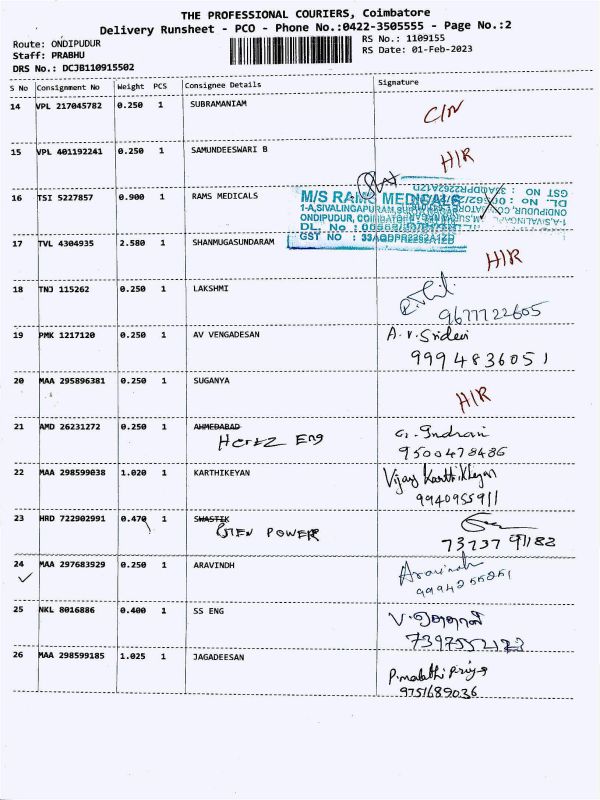 THE PROFESSIONAL COURIERS, Coimbatore
Delivery Runsheet - PCO - Phone No.:0422-3505555 - Page No.:2
Route: ONDIPUDUR
RS No.: 1109155
Staff: PRABHU
RS Date: 01-Feb-2023
DRS No.: DCJB110915502
S No Consignment No Weight PCS Consignee Details Signature
14 VPL 217045782 0.250 1 SUBRAMANIAM C/N
15 VPL 401192241 0.250 1 SAMUNDEESWARI B H/R
16 TSI 5227857 0.900 1 RAMS MEDICALS
M/S RAMS MEDICALS
1-A,SIVALINGAPURAM,
ONDIPUDUR,
DL. No :
GST NO : 33AQDPR2262A1ZD
17 TVL 4304935 2.580 1 SHANMUGASUNDARAM H/R
18 TNJ 115262 0.250 1 LAKSHMI
9677722605
19 PMK 1217120 0.250 1 AV VENGADESAN A.V.Sridevi
9994836051
20 MAA 295896381 0.250 1 SUGANYA H/R
21 AMD 26231272 0.250 1 AHMEDABAD G. Indrani
Hertz Eng 9500478486
22 MAA 298599038 1.020 1 KARTHIKEYAN Vijay Karthikeyan
9940955911
23 HRD 722902991 0.470 1 SWASTIK
POWER 73737 91182
24 MAA 297683929 0.250 1 ARAVINDH Aravindh
25 NKL 8016886 0.400 1 SS ENG
26 MAA 298599185 1.025 1 JAGADEESAN P.malathi Priya
9751689036